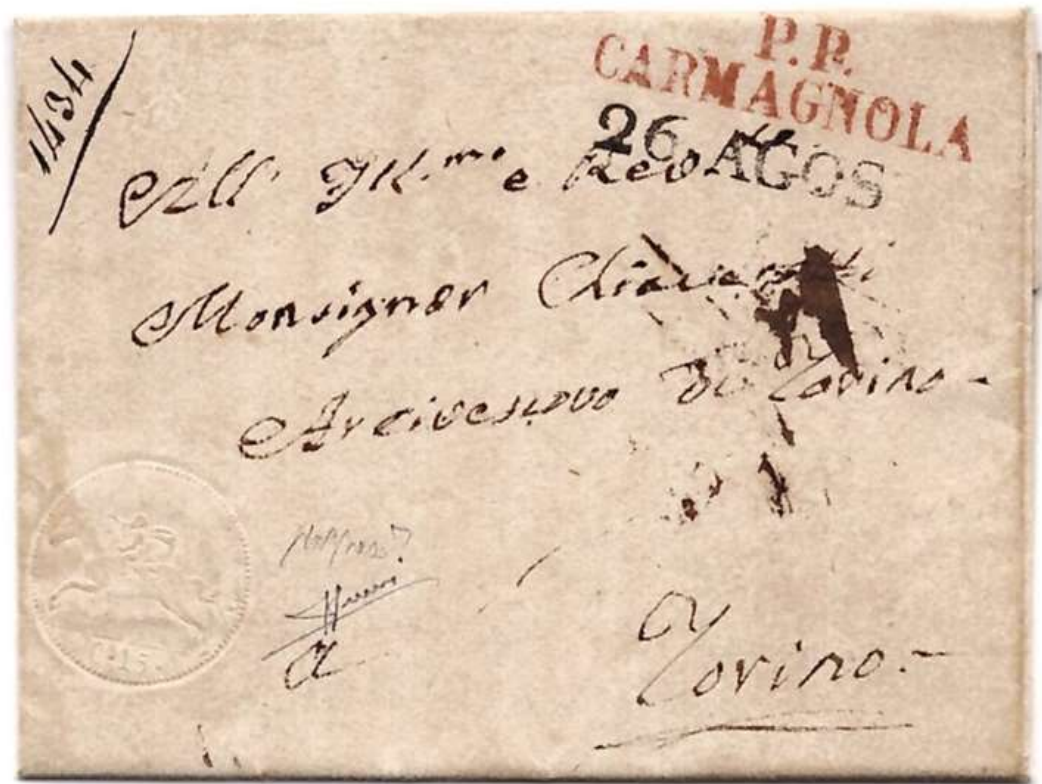 1434
P.P.
CARMAGNOLA
26 AGOS
All' Ill.mo e Rev.
Monsignor
A
Arcivescovo di Torino-
C. 15.
a
Torino.-